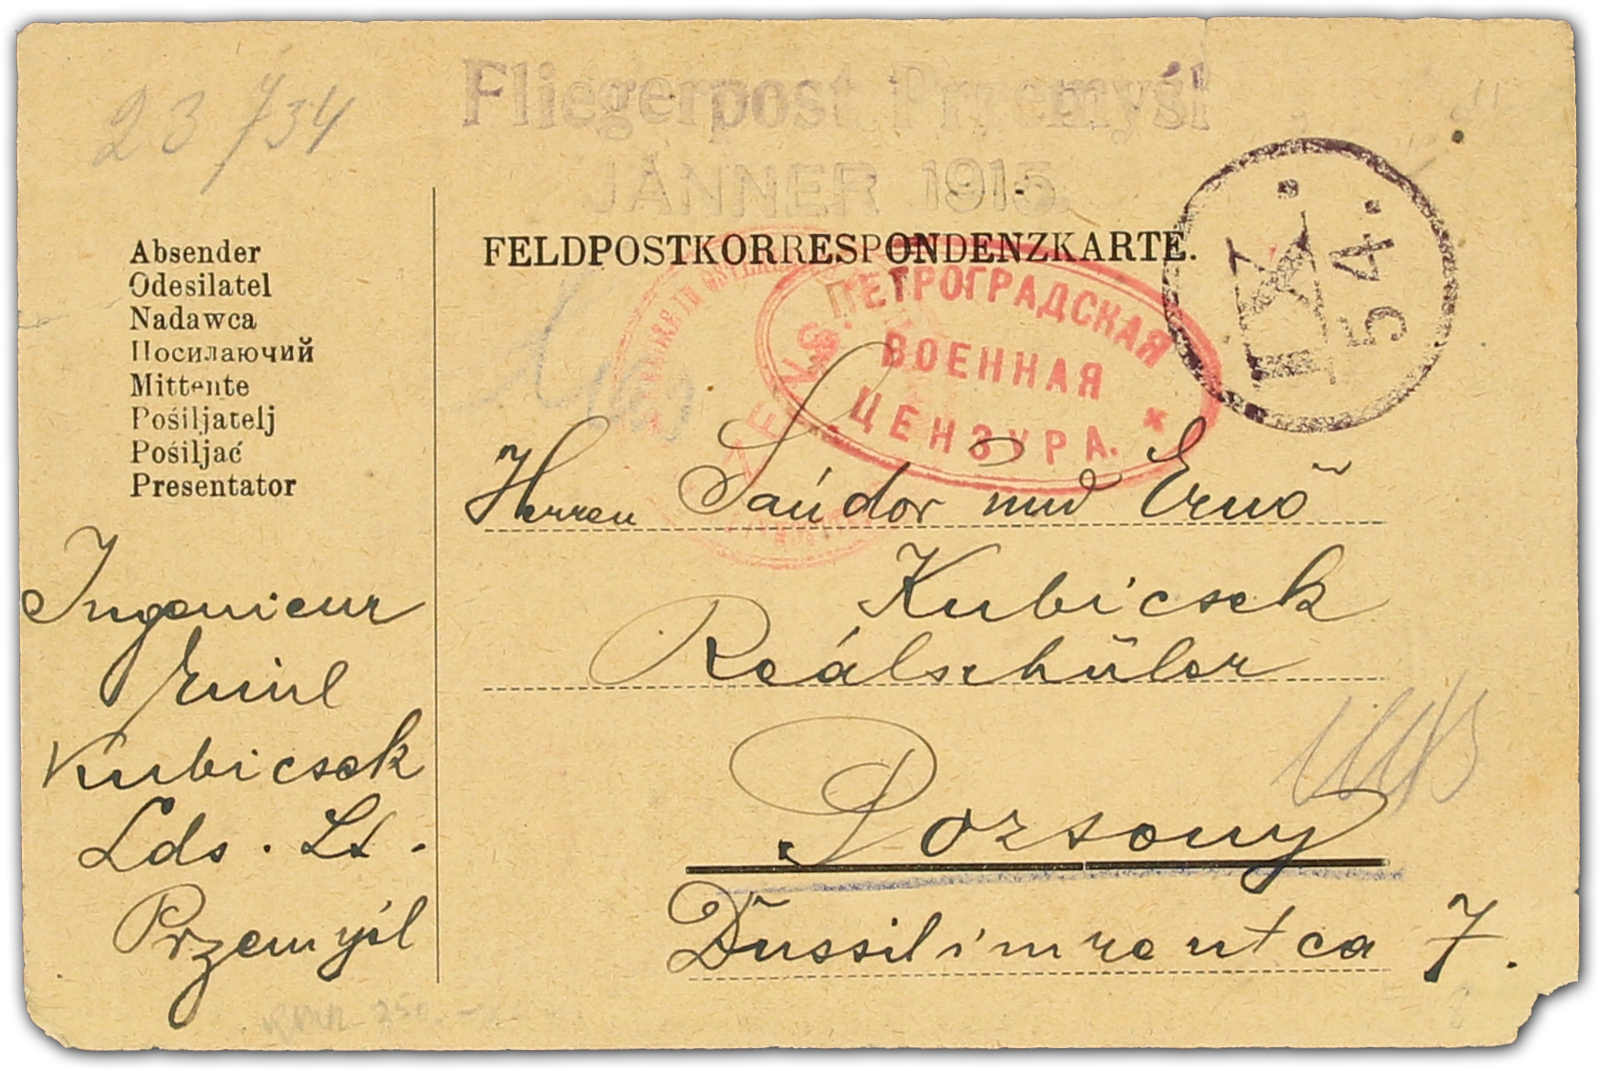 23/734
Fliegerpost Przemyśl
JÄNNER 1915.
FELDPOSTKORRESPONDENZKARTE.
IX.
54.
ПЕТРОГРАДСКАЯ
ВОЕННАЯ
ЦЕНЗУРА.
ZENS.
Absender
Odesilatel
Nadawca
Посилаючий
Mittente
Pošiljatelj
Pošiljač
Presentator
Ingenieur
Emil
Kubicsek
Lds. Lt.
Przemyśl
Herren Sándor und Ernő
Kubicsek
Reálschüler
Pozsony
Dussilimreutca 7.